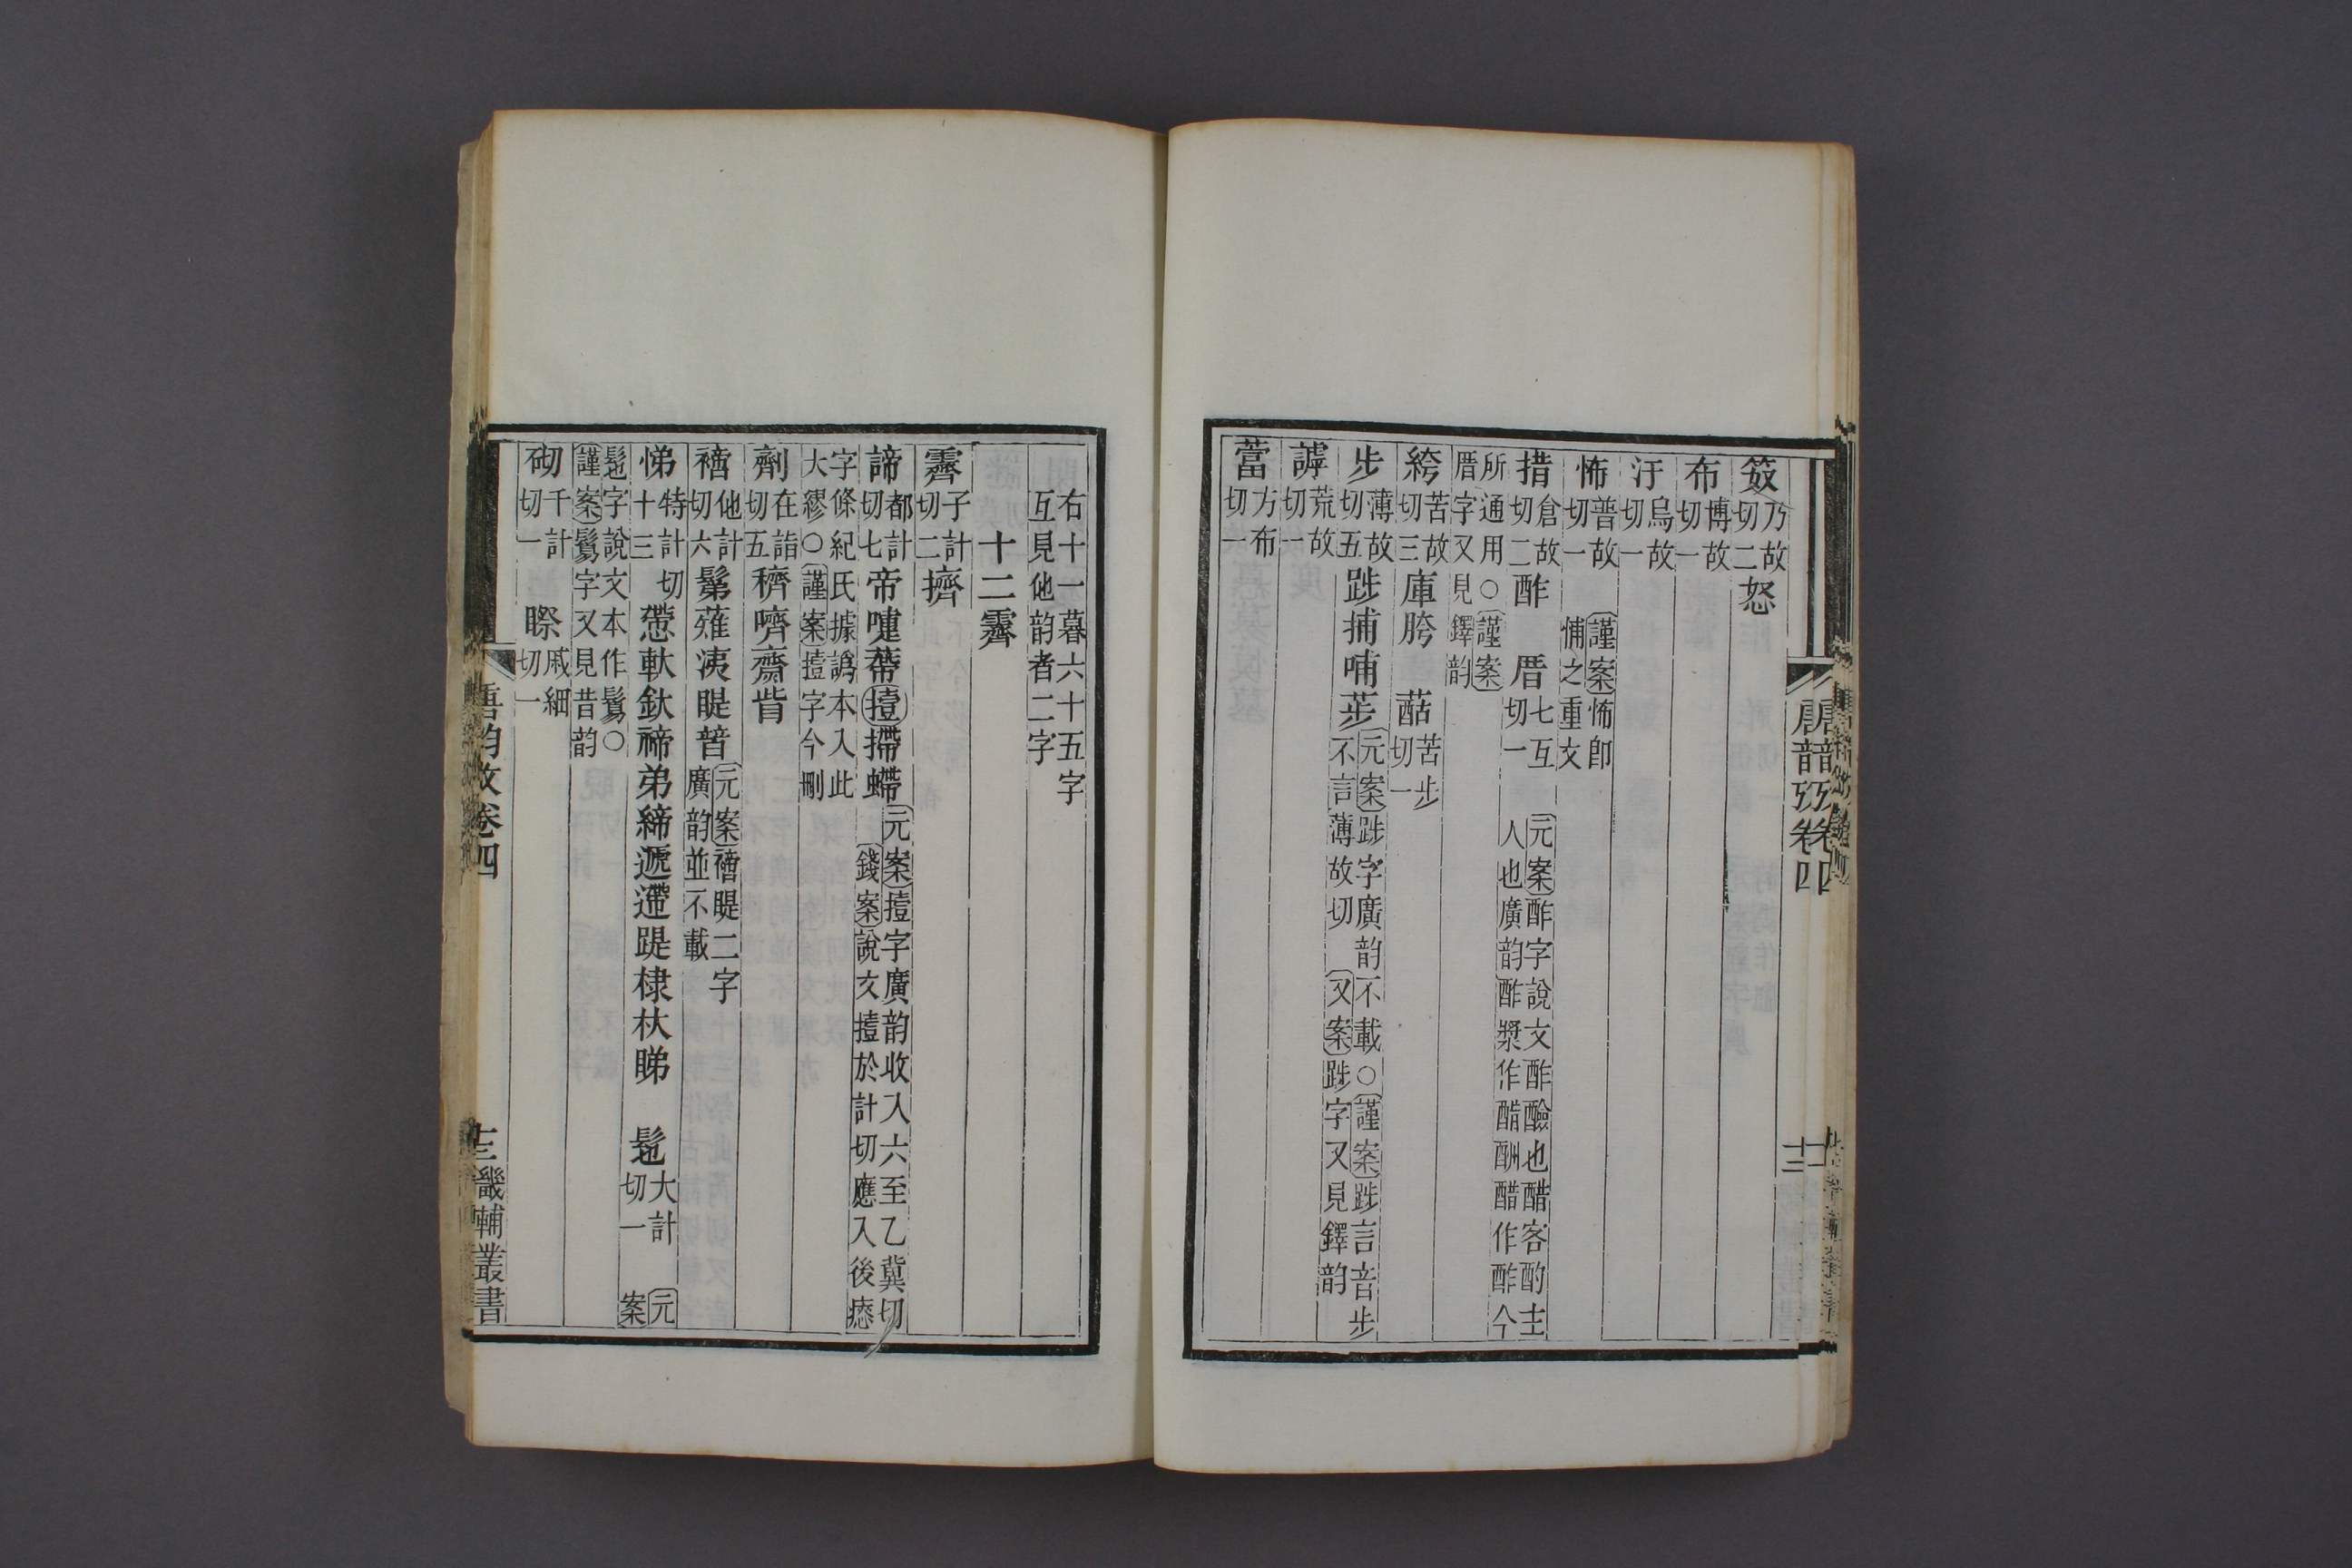 唐韵攷卷四
十二
笯乃故切二怒
布博故切一
汙烏故切一
怖普故切一 謹案怖卽㤄之重文
措倉故切二酢 厝七互切一 元案酢字說文酢醶也醋客酌主人也廣韵酢漿作醋酬醋作酢今
所通用○謹案厝字又見鐸韵
絝苦故切三庫胯 䔯苦步切一
步薄故切五踄捕哺荹元案踄字廣韵不載○謹案踄言音步不言薄故切 又案踄字又見鐸韵
謼荒故切一
䔰方布切一
右十一暮六十五字
互見他韵者二字
十二霽
霽子計切二擠
諦都計切七帝嚏蔕㩢摕螮元案㩢字廣韵收入六至乙冀切 錢案說文㩢於計切應入後瘱
字條紀氏據譌本入此大繆○謹案㩢字今刪
劑在詣切五穧嚌齌眥
䄜他計切六鬄薙洟睼朁元案䄜睼二字廣韵並不載
悌特計切十三 慸軑釱禘弟締遞遰踶棣杕睇 髢大計切一 元案
髢字說文本作鬄○謹案鬄字又見昔韵
砌千計切一 瞭戚細切一
唐韵攷卷四
十二
畿輔叢書